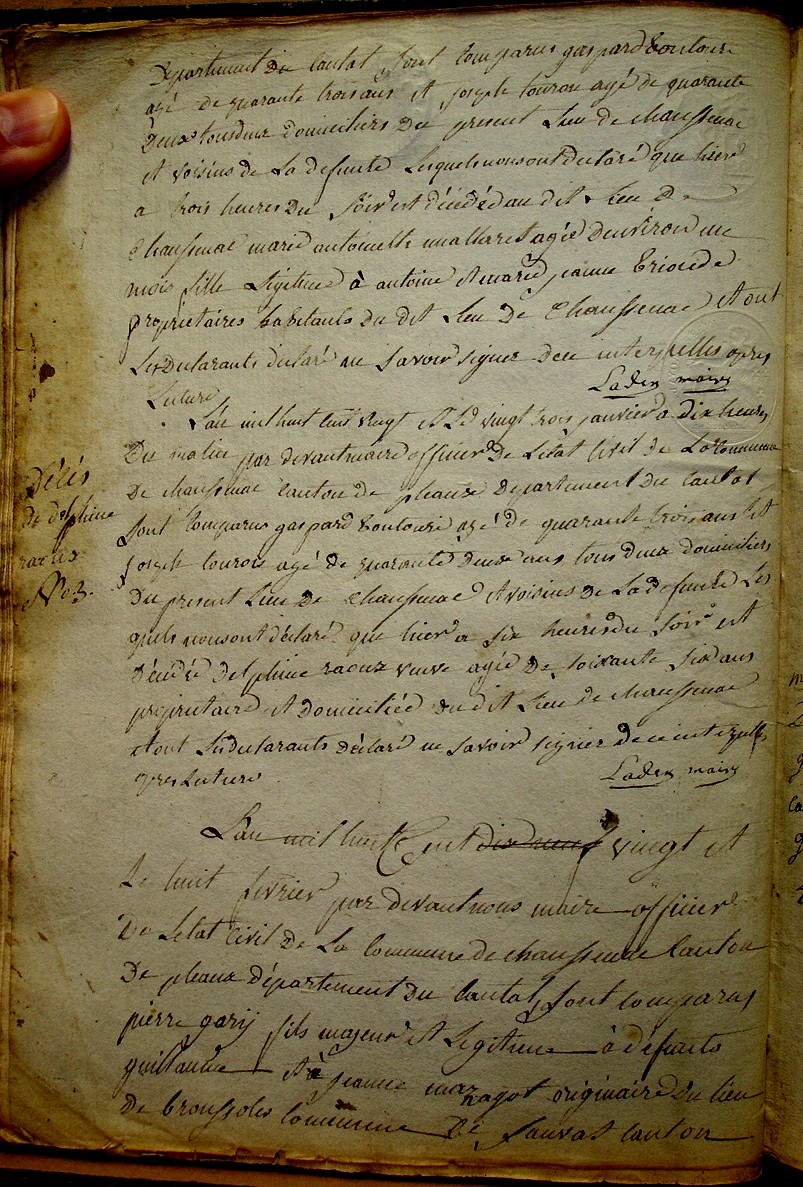 Département du Cantal sont comparus gaspard
agé de quarante trois ans et joseph touron agé de quarante
deux tous deux domiciliers du present lieu de chaussenac
et voisins de la defunte lesquels nous ont declaré que hier
a trois heures du soir est décédée au dit lieu de
chaussenac marie antoinette agée denviron un
mois fille legitime à antoine et marie jeanne
proprietaires habitants du dit lieu de chaussenac et ont
les declarants declaré ne savoir signer de ce interpellés apres
lecture
Ladex maire
L'an mil huit cent vingt et le vingt trois janvier a dix heures
Du matin par devant maire officier de letat civil de la commune
De chaussenac canton de pleaux departement du cantal
sont comparus gaspard agé de quarante trois ans et
joseph touron agé de quarante deux ans tous deux domiciliers
Du present lieu de chaussenac et voisins de la defunte les
quels nous ont déclaré que hier a six heures du soir est
décédée delphine raouz veuve agée de soixante six ans
proprietaire et domiciliée du dit lieu de chaussenac
et ont les declarants déclaré ne savoir signer de ce interpellés
apres lecture
Ladex maire
Décés
de delphine
No 3.
L'an mil huit Cent dix neuf vingt et
le huit fevrier par devant nous maire officier
De letat civil de la commune de chaussenac canton
De pleaux département du cantal sont comparus
pierre gary fils majeur et legitime à defunts
guillaume et à jeanne originaire du lieu
de broussoles commune De canton